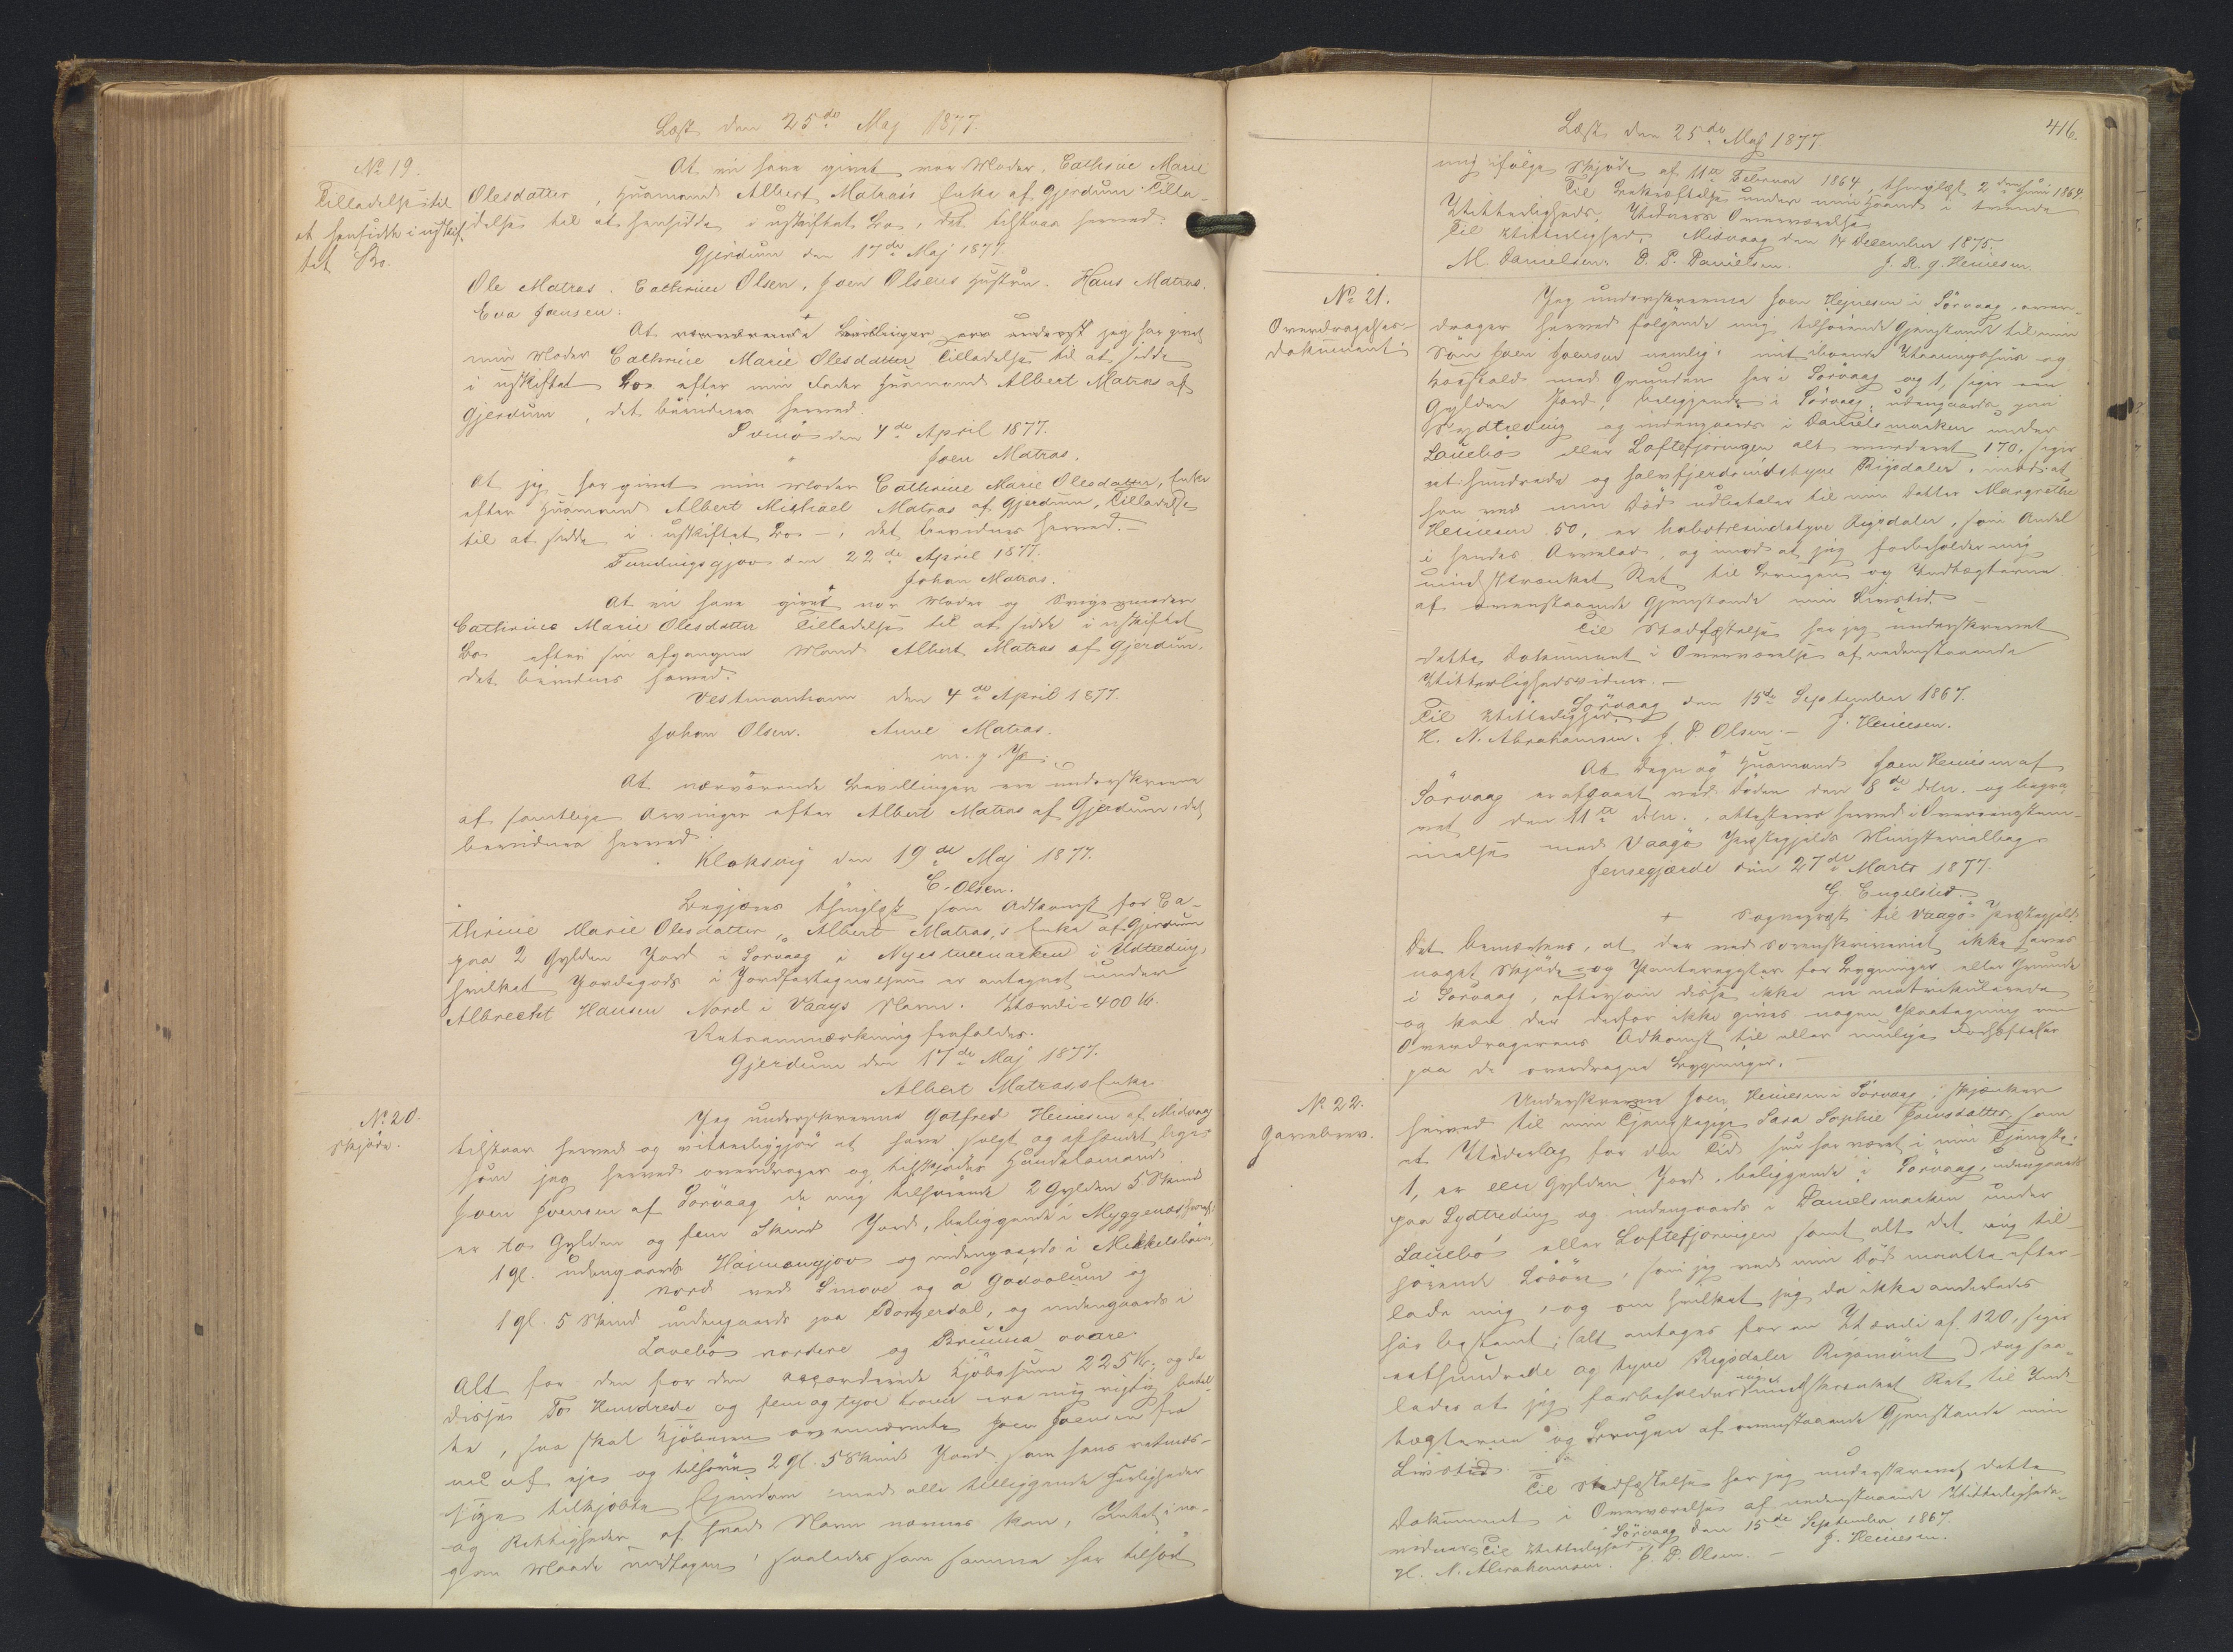 Læst den 25de Maj 1877.
No 19.
Tilladelse til
at hensidde i uskif-
tet Bo.
At vi have givet vor Moder, Cathrine Marie
Olesdatter, Huusmand Albert Matras's Enke af Gjerdum Tilla-
delse til at hensidde i uskiftet Bo, det tilstaaes herved.
Gjerdum den 17de Maj 1877.
Ole Matras. Cathrine Olsen, Joen Olsens Hustru. Hans Matras.
Eva Jensen.
At jeg har givet
min Moder Cathrine Marie Olesdatter Tilladelse til at sidde
i uskiftet Bo efter min Fader Huusmand Albert Matras af
Gjerdum, det bevidnes herved.
Svinø den 4de April 1877.
Joen Matras.
At jeg har givet min Moder Cathrine Marie Olesdatter, Enke
efter Huusmand Albert Michael Matras af Gjerdum, Tilladelse
til at sidde i uskiftet Bo -, det bevidnes herved. -
Funningsgjov den 22de April 1877.
Johan Matras.
At vi have givet vor Moder og Svigermoder
Cathrine Marie Olesdatter Tilladelse til at sidde i uskiftet
Bo efter sin afgangne Mand Albert Matras af Gjerdum,
det bevidnes herved.
Vestmanhavn den 4de April 1877.
Johan Olsen. Anne Matras.
m. f. P.
At nærværende Bevillinger ere underskrevne
af samtlige Arvinger efter Albert Matras af Gjerdum, det
bevidnes herved.
Klaksvig den 19de Maj 1877.
C. Olsen.
Begjæres thinglæst som Adkomst for Ca-
thrine Marie Olesdatter, Albert Matras,s Enke af Gjerdum
paa 2 Gylden Jord i Sorvaag i Nyestuemarken i Udtreding
hvilket Jordegods i Jordfortegnelsen er antegnet under
Albrecht Hansen Nord i Vaags Navn. Værdi = 400 Kr.
Retsanmærkning frafaldes.
Gjerdum den 17de Maj 1877.
Albert Matras,s Enke.
No 20.
Skjøde.
Jeg underskrevne Gotfred Heinesen af Midvaag
tilstaar herved og vitterliggjør at have solgt og afhændet lige-
som jeg herved overdrager og tilskjøder Handelsmand
Joen Joensen af Sorvaag de mig tilhørende 2 Gylden 5 Skind
er to Gylden og fem Skind Jord, beliggende i Myggenæs
1 gl. udengaards Haimangjov og indengaards i Mikkelsbøin,
nord ved Smove og á Gødvolum og
1 gl. 5 Skind udengaards paa Borgerdal, og indengaards i
Lavebø nordere og Bruuna ovare.
Alt for den for den accorderede Kjøbesum 225 Kr; og da
disse To Hundrede og fem og tyve Kroner ere mig rigtig betal-
te, saa skal Kjøberen ovennævnte Joen Joensen fra
nu af eje og tilhøre 2 gl. 5 Skind Jord som hans retmæs-
sige tilkjøbte Ejendom med alle tilliggende Herligheder
og Rettigheder af hvad Navn nævnes kan, Intet i no-
gen Maade undtagen, saaledes som samme har tilhørt
416.
Læst den 25de Maj 1877.
mig ifølge Skjøde af 11te Februar 1864, thinglæst 2den Juni 1864.
Til Bekræftelse under min Haand i tvende
Vitterligheds Vidners Overværelse.
Til Vitterlighed, Midvaag den 14 December 1875.
M. Danielsen. D. P. Danielsen. J. R. G. Heinesen.
No 21.
Overdragelses-
dokument.
Jeg underskrevne Joen Hejnesen i Sörvaag over-
drager herved følgende mig tilhørende Gjenstande til min
Søn Joen Joensen nemlig: mit iboende Vaaningshus og
med Grunden her i Sörvaag og 1, siger een
Gylden Jord, beliggende i Sörvaag, udengaards paa
Sydtreding og indengaards i Danielsmarken under
Lauebø eller Loftefjöringen alt vurderet 170, siger
eet hundrede og halvfjerdsindstyve Rigsdaler, imod at
han ved min Död udbetaler til min Datter Margrethe
Heinesen 50, er halvtresindstyve Rigsdaler, som Andel
i hendes Arvelod, og imod at jeg forbeholder mig
uindskrænket Ret til Brugen og Indtægterne
af ovenstaaende Gjenstande min Livstid. -
Til Stadfæstelse har jeg underskrevet
dette Dokument i Overværelse af nedenstaaende
Vitterlighedsvidner. -
Sörvaag den 15de September 1867.
Til Vitterlighed J. Heinesen.
H. N. Abrahamsen. J. D. Olsen. -
At Degn og Huusmand Joen Heinesen af
Sörvaag er afgaaet ved Döden den 8de ds. og begra-
vet den 11te ds., attesteres herved i Overensstem-
melse med Vaagø Præstegjelds Ministerialbog.
Jensegjærde den 27de Marts 1877.
G. Engelsted.
Sognepræst til Vaagø Præstegjeld.
Det bemærkes, at der ved Sorenskriveriet ikke haves
noget Skjøde- og Panteregister for Bygninger eller Grunde
i Sorvaag, eftersom disse ikke ere matrikulerede
og kan der derfor ikke gives nogen Paategning om
Overdragerens Adkomst til eller mulige Forhæftelser
paa de overdragne Bygninger. -
No 22.
Gavebrev.
Underskrevne Joen Heinesen i Sörvaag, skjænker
herved til min Tjenestepige Sara Sophie Joensdatter, som
et Vederlag for den Tid hun har været i min Tjeneste,
1, er een Gylden Jord, beliggende i Sörvaag, udengaards
paa Sydtreding og indengaards i Danielsmarken under
Lauebø eller Loftefjöringen samt alt det mig til-
hörende Lösöre, som jeg ved min Död maatte efter-
lade mig, og om hvilket jeg da ikke anderledes
har bestemt; (alt antages for en Værdi af 120, siger
eethundrede og tyve Rigsdaler Rigsmönt), dog saa-
ledes at jeg forbeholder mig uindskrænket Ret til Ind-
tægterne og Brugen af ovenstaaende Gjenstande min
Livstid. -
Til Stadfæstelse har jeg underskrevet dette
Dokument i Overværelse af nedenstaaende Vitterligheds-
vidner. Sörvaag den 15de September 1867.
Til Vitterlighed J. Heinesen.
H. N. Abrahamsen. J. D. Olsen. -